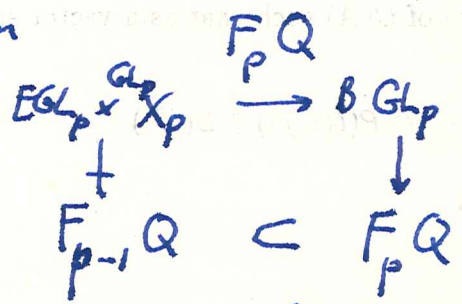 F_p Q
EGL_p ×^{GL_p} X_p → BGL_p
↓ ↓
F_{p-1} Q ⊂ F_p Q